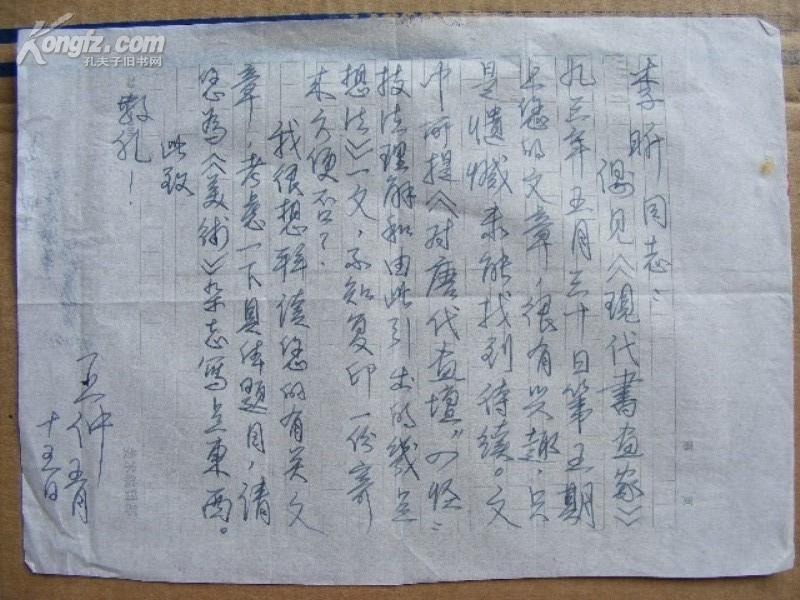 Kongfz.com
孔夫子旧书网
李昕同志：
偶见《現代書画家》
九三年五月三十日第五期
上您的文章，很有兴趣，只
是遗憾未能找到待续。文
中所提《对唐代画壇"四怪"
技法理解和由此引出的幾点
想法》一文，不知复印一份寄
来方便否？
我很想拜读您的有关文
章，考虑一下具体题目，请
您为《美術》杂志写点東西。
此致
敬礼！
王仲 五月
十五日